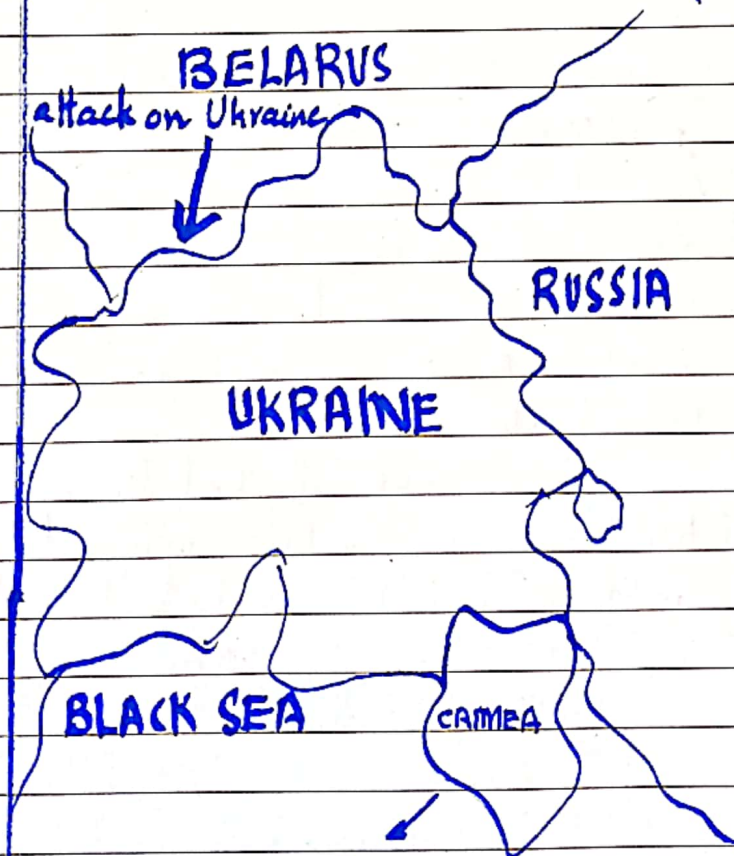 BELARUS
attack on Ukraine
RUSSIA
UKRAINE
BLACK SEA
CRIMEA